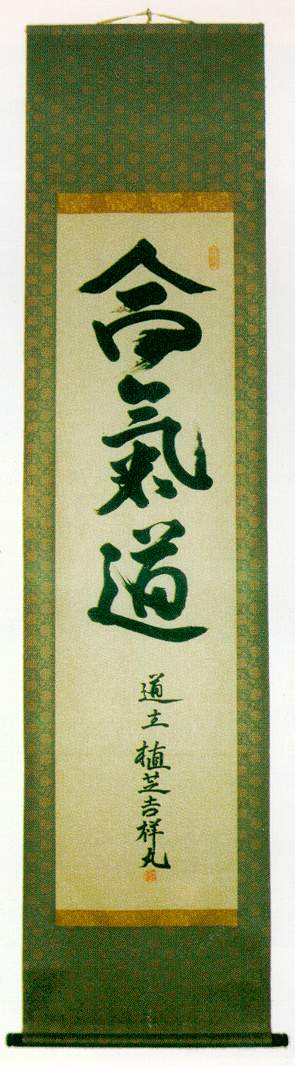 合氣道
道主 植芝吉祥丸